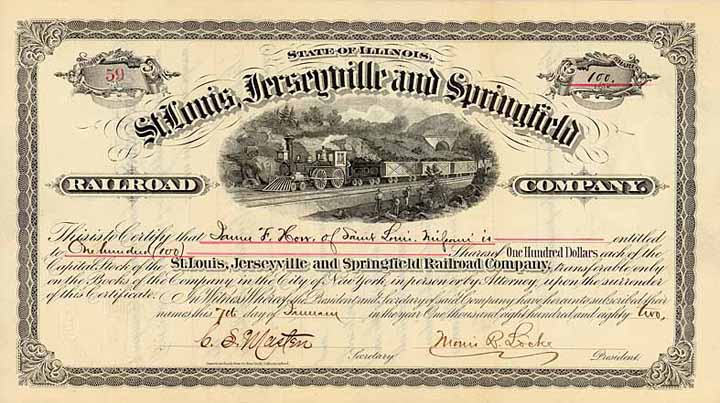 STATE OF ILLINOIS.
59
100.
St. Louis, Jerseyville and Springfield
RAILROAD COMPANY.
This is to Certify that James F. How. of Saint Louis Missouri is entitled
to One hundred (100) Shares of One Hundred Dollars each of the
Capital Stock of the St. Louis, Jerseyville and Springfield Railroad Company, transferable only
on the Books of the Company in the City of New York, in person or by Attorney, upon the surrender
of this Certificate. In Witness Whereof the President and Secretary of said Company have hereunto subscribed their
names this 7th day of January in the year One thousand eight hundred and eighty two,
Secretary
Morris R. Locke
President.